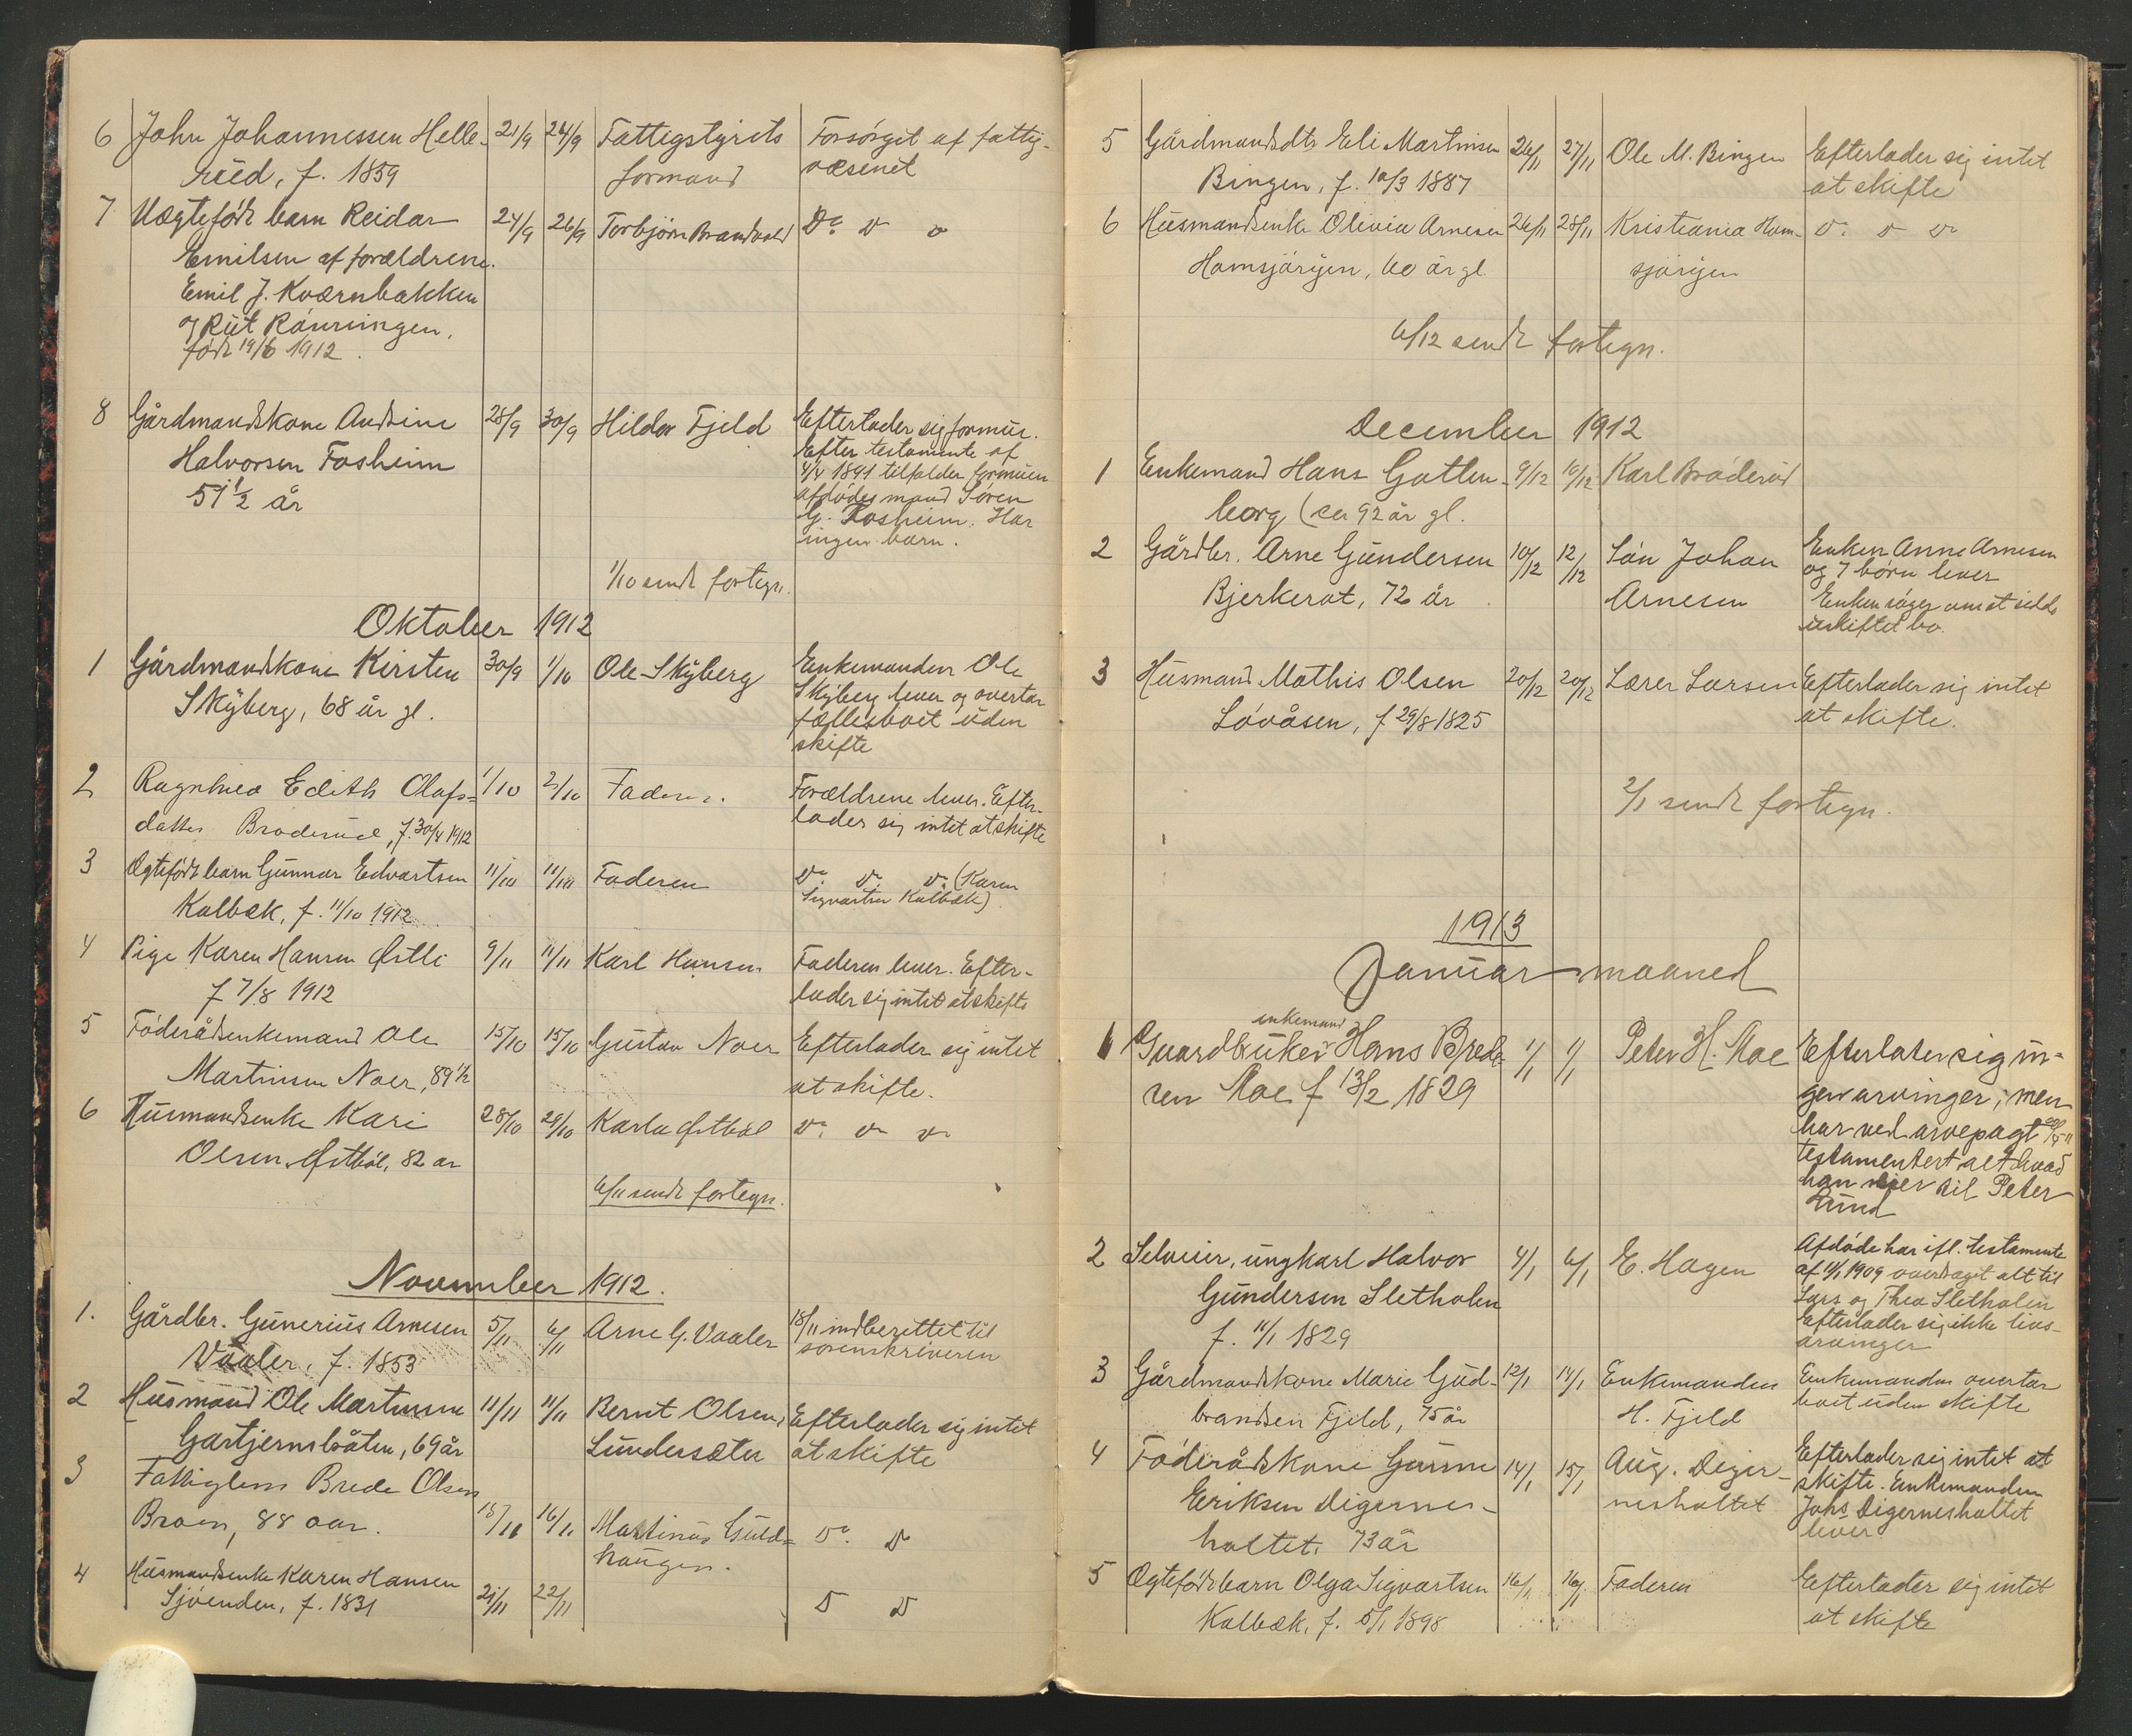 6 John Johannessen Helle- 21/9 24/9 Fattigstyrets Forsørget af fattig-
rud, f. 1859 formand væsenet
7 Uægtefødt barn Reidar 24/9 26/9 Torbjørn Brandvold Do. D D
Emilsen af forældrene
Emil J. Kværnbakken
og Rut Rønningen,
født 19/6 1912.
8 Gårdmandskone Andrine 28/9 30/9 Hildor Fjeld Efterlader sig formue.
Halvorsen Fosheim Efter testamente af
51 1/2 år 4/4 1891 tilfalder formuen
afdødes mand Søren
G. Fosheim. Har
ingen barn.
1/10 sendt fortegn.
Oktober 1912
1 Gårdmandskone Kirsten 30/9 1/10 Ole Skyberg Enkemanden Ole
Skyberg, 68 år gl. Skyberg lever og overtar
fællesboet uden
skifte
2 Ragnhild Edith Olafs= 1/10 2/10 Faderen. Forældrene lever. Efter-
datter Broderud, f. 30/4 1912 lader sig intet at skifte
3 Ægtefødt barn Gunnar Edvartsen 11/10 11/10 Faderen Do D D. (Karen
Kalbæk, f. 11/10 1912 Sigvartsen Kalbæk)
4 Pige Karen Hansen Østli 9/11 11/11 Karl Hansen Faderen lever. Efter-
f 7/8 1912 lader sig intet at skifte
5 Føderådsenkemand Ole 15/10 15/10 Gustav Noer Efterlader sig intet
Martinsen Noer, 89 1/2 at skifte.
6 Husmandsenke Kari 28/10 29/10 Karla Østbøl D. D D
Olsen Østbøl, 82 år
6/11 sendt fortegn.
November 1912.
1. Gårdbr. Gunerius Arnesen 5/11 6/11 Arne G. Vaaler 18/11 indberettet til
Vaaler, f. 1853 sorenskriveren
2 Husmand Ole Martinsen 11/11 11/11 Bernt Olsen, Efterlader sig intet
Gartjernsbråten, 69 år Lundersæter at skifte
3 Fattiglem Brede Olsen
Broen, 88 aar. 16/11 Martinus Guld= Do. D
haugen.
4 Husmandsenke Karen Hansen 21/11 22/11 D D
Sjøenden, f. 1831
5 Gårdmandsdtr Eli Martinsen 26/11 27/11 Ole M. Bingen Efterlader sig intet
Bingen, f. 10/3 1887 at skifte
6 Husmandsenke Olivia Arnesen 26/11 28/11 Kristiania Ham- D. D D
Hamsjøryen, 60 år gl. sjøryen
6/12 sendt fortegn.
December 1912
1 Enkemand Hans Gotten- 9/12 10/12 Karl Brøderud
borg (ca 92 år gl.
2 Gårdbr. Arne Gundersen 10/12 12/12 Søn Johan Enken Anne Arnesen
Bjerkerot, 72 år Arnesen og 7 børn lever
Enken søger om at sidde
uskiftet bo.
3 Husmand Mathis Olsen 20/12 20/12 Lærer Larsen Efterlader sig intet
Løvåsen, f 29/8 1825 at skifte.
2/1 sendt fortegn.
1913
Januar maaned
enkemand
1 Guardbruker Hans Brede 1/1 1/1 Peter H. Moe Efterlater sig in-
sen Moe f 13/2 1829 gen arvinger; men
har ved arvepagt
testamentert alt hvad
han eier til Peter
Lund
2 Selveier, ungkarl Halvor 4/1 6/1 E. Hagen Afdøde har ifl. testamente
Gundersen Sletholen af 11/1 1909 overdraget alt til
f. 11/1 1829 Lars og Thea Sletholen
Efterlader sig ikke livs-
arvinger
3 Gårdmandskone Marie Gud- 12/1 14/1 Enkemanden Enkemanden overtar
brandsen Fjeld, 75 år H. Fjeld boet uden skifte
4 Føderådskone Gunne 14/1 15/1 Aug. Diger- Efterlader sig intet at
Eriksen Digernes- nesholtet skifte. Enkemanden
holtet. 73 år Johs Digernesholtet
lever
5 Ægtefødt barn Olga Sigvartsen 16/1 16/1 Faderen Efterlader sig intet
Kalbæk, f. 5/1 1898 at skifte